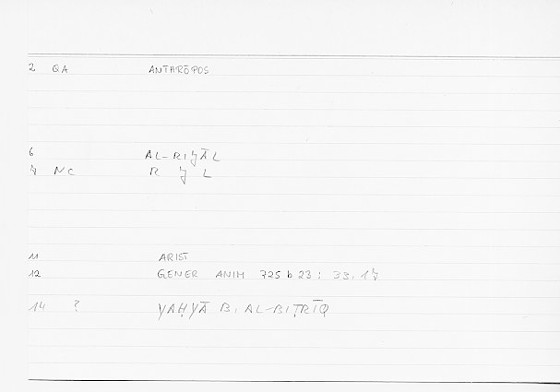 2 QA ANTHRŌPOS
6 AL-RIJĀL
7 NC R J L
11 ARIST
12 GENER ANIM 725 b 23 ; 33, 17
14 ? YAḤYĀ B. AL-BIṬRĪQ